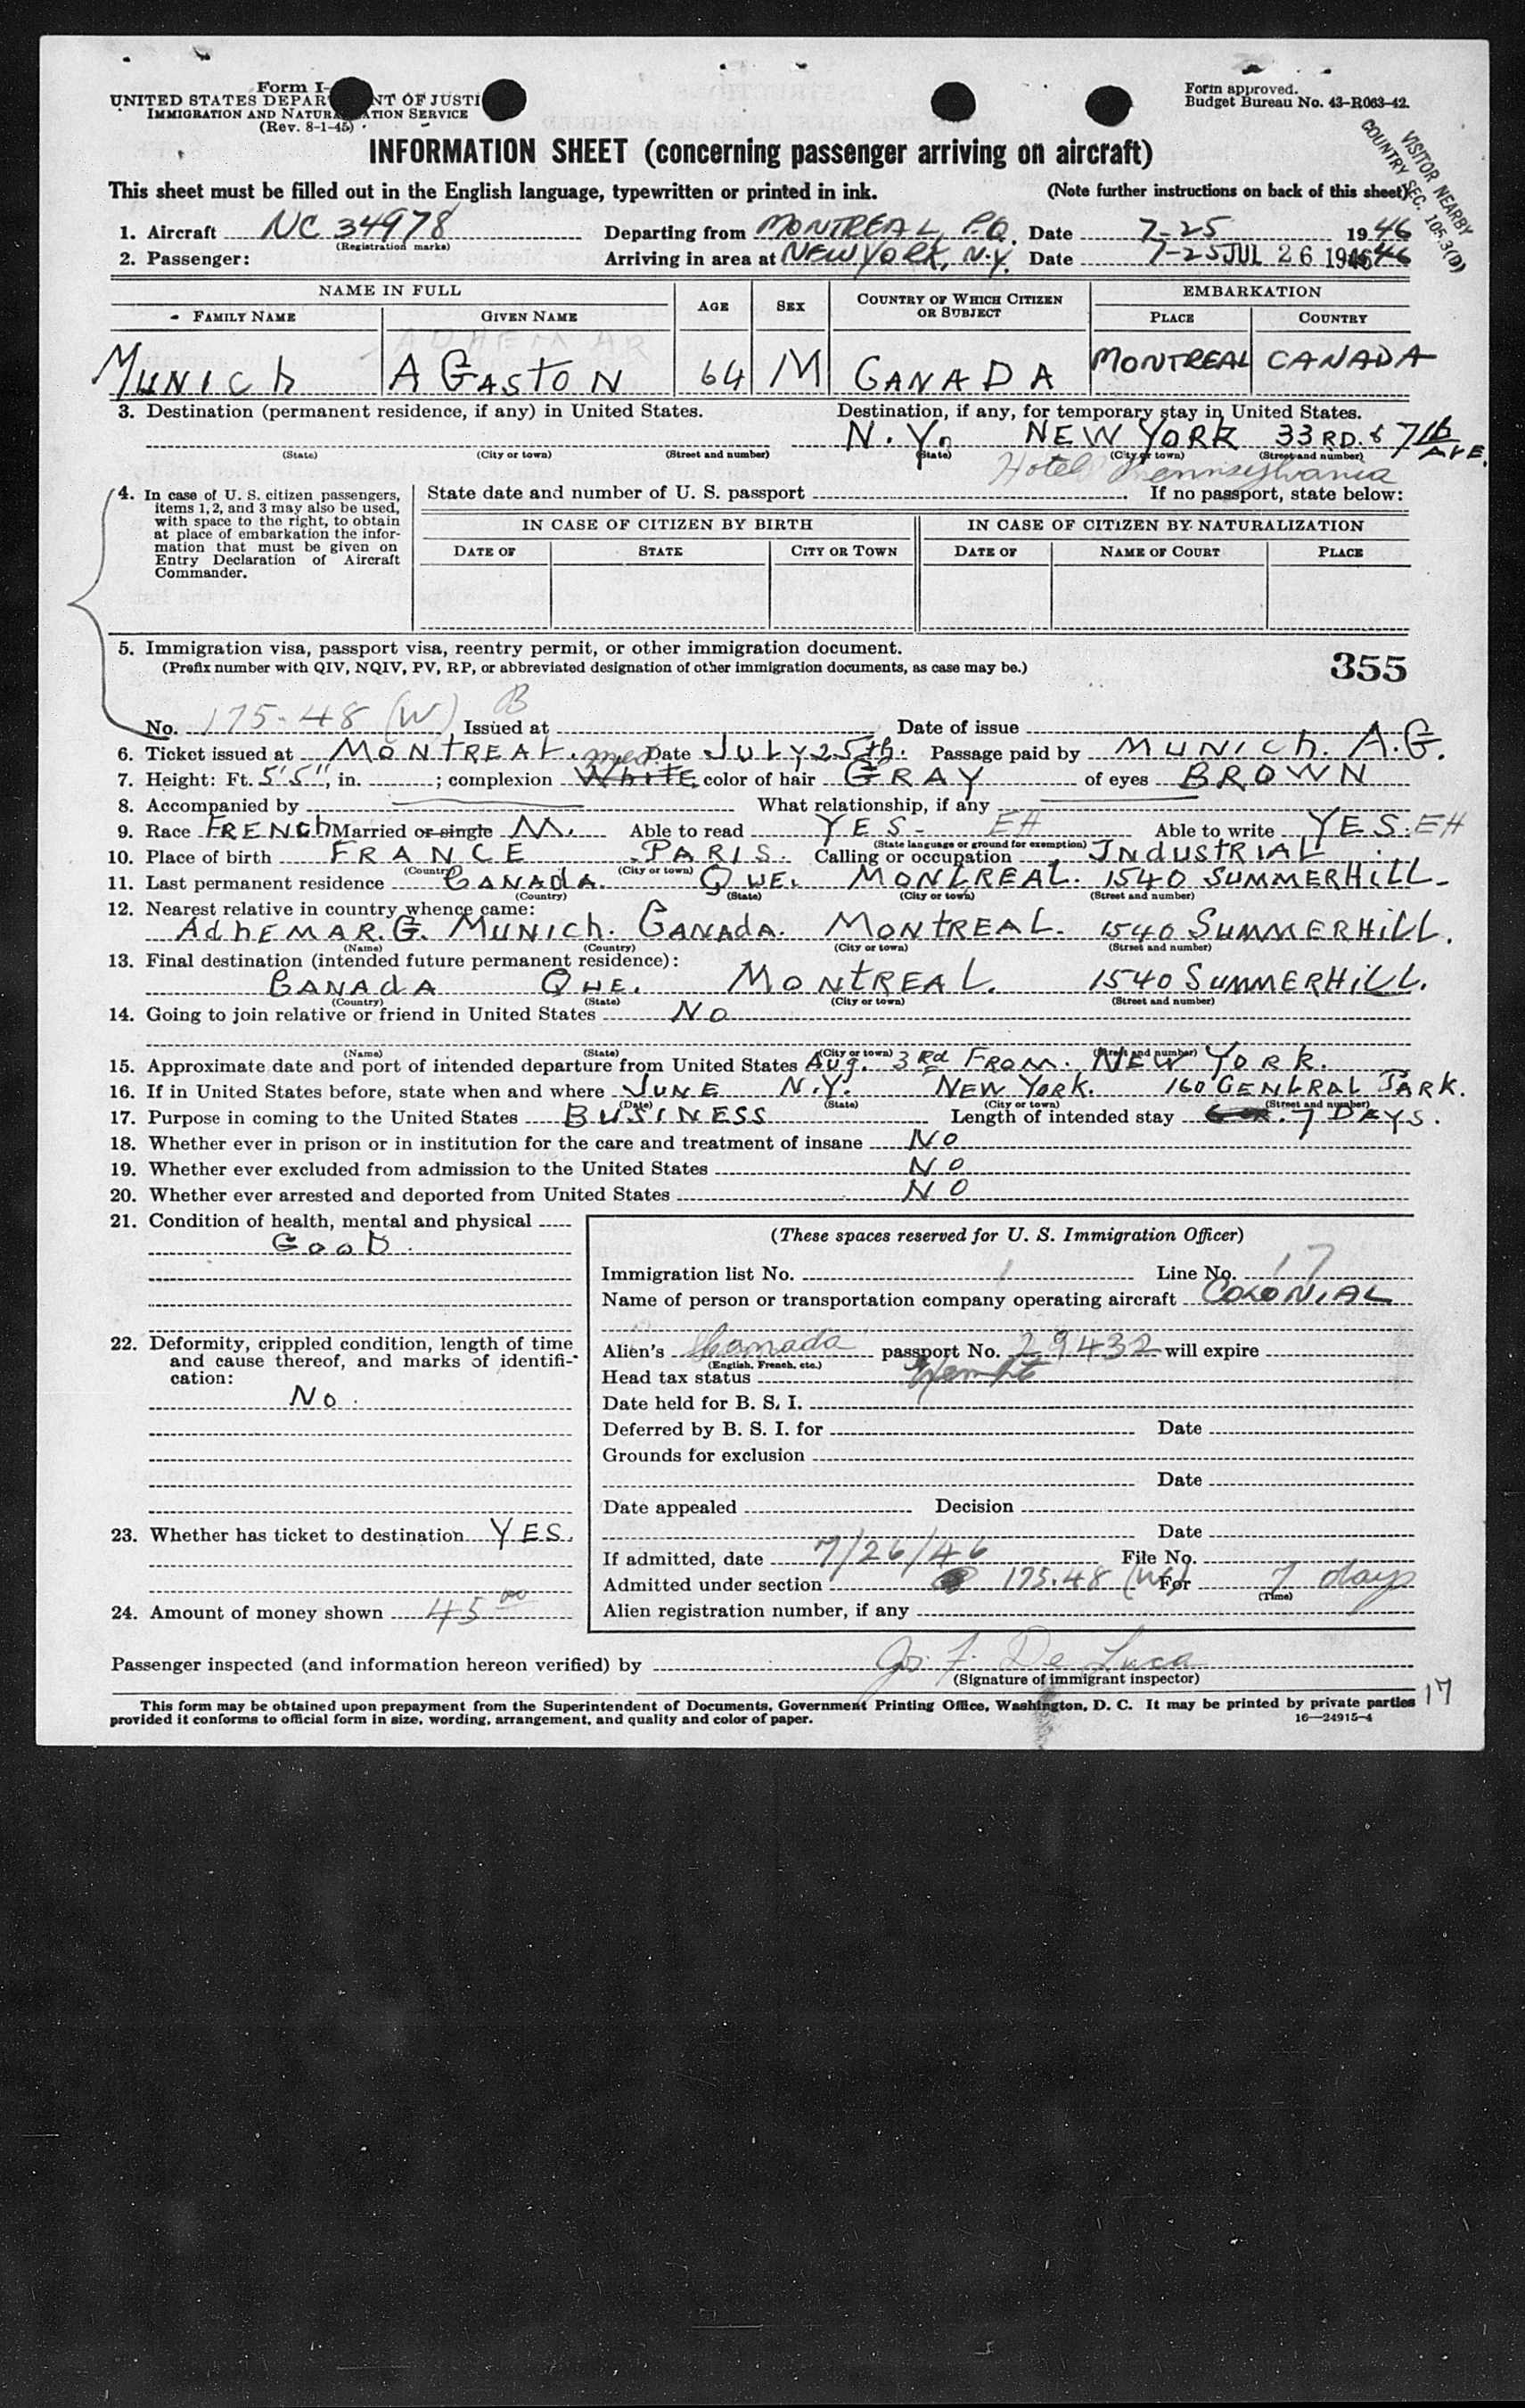 Form I-
UNITED STATES DEPAR NT OF JUSTI
IMMIGRATION AND NATURA ATION SERVICE
(Rev. 8-1-45)
Form approved.
Budget Bureau No. 43-R063-42.
VISITOR NEARBY
COUNTRY SEC. 105.3(D)
INFORMATION SHEET (concerning passenger arriving on aircraft)
This sheet must be filled out in the English language, typewritten or printed in ink. (Note further instructions on back of this sheet)
1. Aircraft NC 34978 Departing from MONTREAL, P.Q. Date 7-25 1946
(Registration marks)
2. Passenger: Arriving in area at NEW YORK, N.Y. Date 7-25 JUL 26 1946 46
NAME IN FULL AGE SEX COUNTRY OF WHICH CITIZEN OR SUBJECT EMBARKATION
FAMILY NAME GIVEN NAME PLACE COUNTRY
ADHEMAR
MUNICh A GASTON 64 M CANADA MONTREAL CANADA
3. Destination (permanent residence, if any) in United States. Destination, if any, for temporary stay in United States.
N.Y. NEW YORK 33RD. & 7th AVE.
(State) (City or town) (Street and number) (State) (City or town) (Street and number)
Hotel Pennsylvania
4. In case of U. S. citizen passengers, items 1, 2, and 3 may also be used, with space to the right, to obtain at place of embarkation the information that must be given on Entry Declaration of Aircraft Commander.
State date and number of U. S. passport . If no passport, state below:
IN CASE OF CITIZEN BY BIRTH IN CASE OF CITIZEN BY NATURALIZATION
DATE OF STATE CITY OR TOWN DATE OF NAME OF COURT PLACE
5. Immigration visa, passport visa, reentry permit, or other immigration document.
(Prefix number with QIV, NQIV, PV, RP, or abbreviated designation of other immigration documents, as case may be.)
355
B
No. 175-48 (W) Issued at Date of issue
6. Ticket issued at MONTREAL. Date JULY 25th. Passage paid by MUNICh. A.G.
med
7. Height: Ft. 5'5", in. ; complexion White color of hair GRAY of eyes BROWN
8. Accompanied by What relationship, if any
9. Race FRENCh Married or single M. Able to read YES - EH Able to write YES. EH
(State language or ground for exemption)
10. Place of birth FRANCE PARIS. Calling or occupation INdUSTRIAL
(Country) (City or town)
11. Last permanent residence CANADA. QUE. MONTREAL. 1540 SUMMERHILL.
(Country) (State) (City or town) (Street and number)
12. Nearest relative in country whence came:
AdhEMAR. G. MUNICh. CANADA. MONTREAL. 1540 SUMMERHILL.
(Name) (Country) (City or town) (Street and number)
13. Final destination (intended future permanent residence):
CANAdA QUE. MONTREAL. 1540 SUMMERHILL.
(Country) (State) (City or town) (Street and number)
14. Going to join relative or friend in United States NO
(Name) (State) (City or town) (Street and number)
15. Approximate date and port of intended departure from United States AUG. 3Rd FROM. NEW YORK.
16. If in United States before, state when and where JUNE N.Y. NEW YORK. 160 CENTRAL PARK.
(Date) (State) (City or town) (Street and number)
17. Purpose in coming to the United States BUSINESS Length of intended stay 7 DAYS.
18. Whether ever in prison or in institution for the care and treatment of insane NO
19. Whether ever excluded from admission to the United States NO
20. Whether ever arrested and deported from United States NO
21. Condition of health, mental and physical
GOOD.
22. Deformity, crippled condition, length of time and cause thereof, and marks of identification:
No.
23. Whether has ticket to destination YES.
24. Amount of money shown 45 00
(These spaces reserved for U. S. Immigration Officer)
Immigration list No. 1 Line No. 17
Name of person or transportation company operating aircraft COLONIAL
Alien's Canada passport No. 29432 will expire
(English, French, etc.)
Head tax status Exempt
Date held for B. S. I.
Deferred by B. S. I. for Date
Grounds for exclusion
Date
Date appealed Decision
Date
If admitted, date 7/26/46 File No.
Admitted under section 175.48 For 7 days
(Time)
Alien registration number, if any
Passenger inspected (and information hereon verified) by Jos. F. De Luca
(Signature of immigrant inspector)
This form may be obtained upon prepayment from the Superintendent of Documents, Government Printing Office, Washington, D. C. It may be printed by private parties
provided it conforms to official form in size, wording, arrangement, and quality and color of paper. 16—24915-4
17